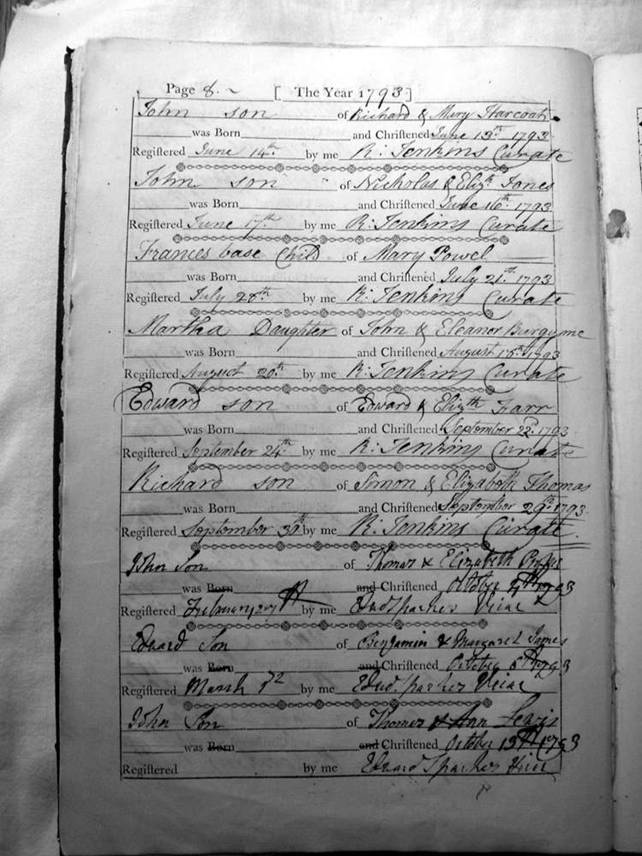 Page 8. ~ [ The Year 1793 ]
John son of Richard & Mary Harcoat
was Born and Chriſtened June 13th 1793
Regiſtered June 14th by me R: Jenkins Curate
John son of Nicholas & Elizth Jones
was Born and Chriſtened June 16th 1793
Regiſtered June 17th by me R: Jenkins Curate
Frances base Child of Mary Powel
was Born and Chriſtened July 21st 1793
Regiſtered July 28th by me R: Jenkins Curate
Martha Daughter of John & Eleanor
was Born and Chriſtened August 1793
Regiſtered August 20th by me R: Jenkins Curate
Edward son of Edward & Elizth Farr
was Born and Chriſtened September 22 1793
Regiſtered September 24th by me R: Jenkins Curate
Richard son of Simon & Elizabeth Thomas
was Born and Chriſtened September 29th 1793
Regiſtered September 30th by me R: Jenkins Curate
John Son of Thomas & Elizabeth
was Born and Chriſtened October 1793
Regiſtered February by me Edwd Parker Vicar
Edward Son of Benjamin & Margaret James
was Born and Chriſtened October 6th 1793
Regiſtered March by me Edwd Parker Vicar
John Son of Thomas & Ann Lewis
was Born and Chriſtened October 13th 1793
Regiſtered by me Edward Parker Vicar